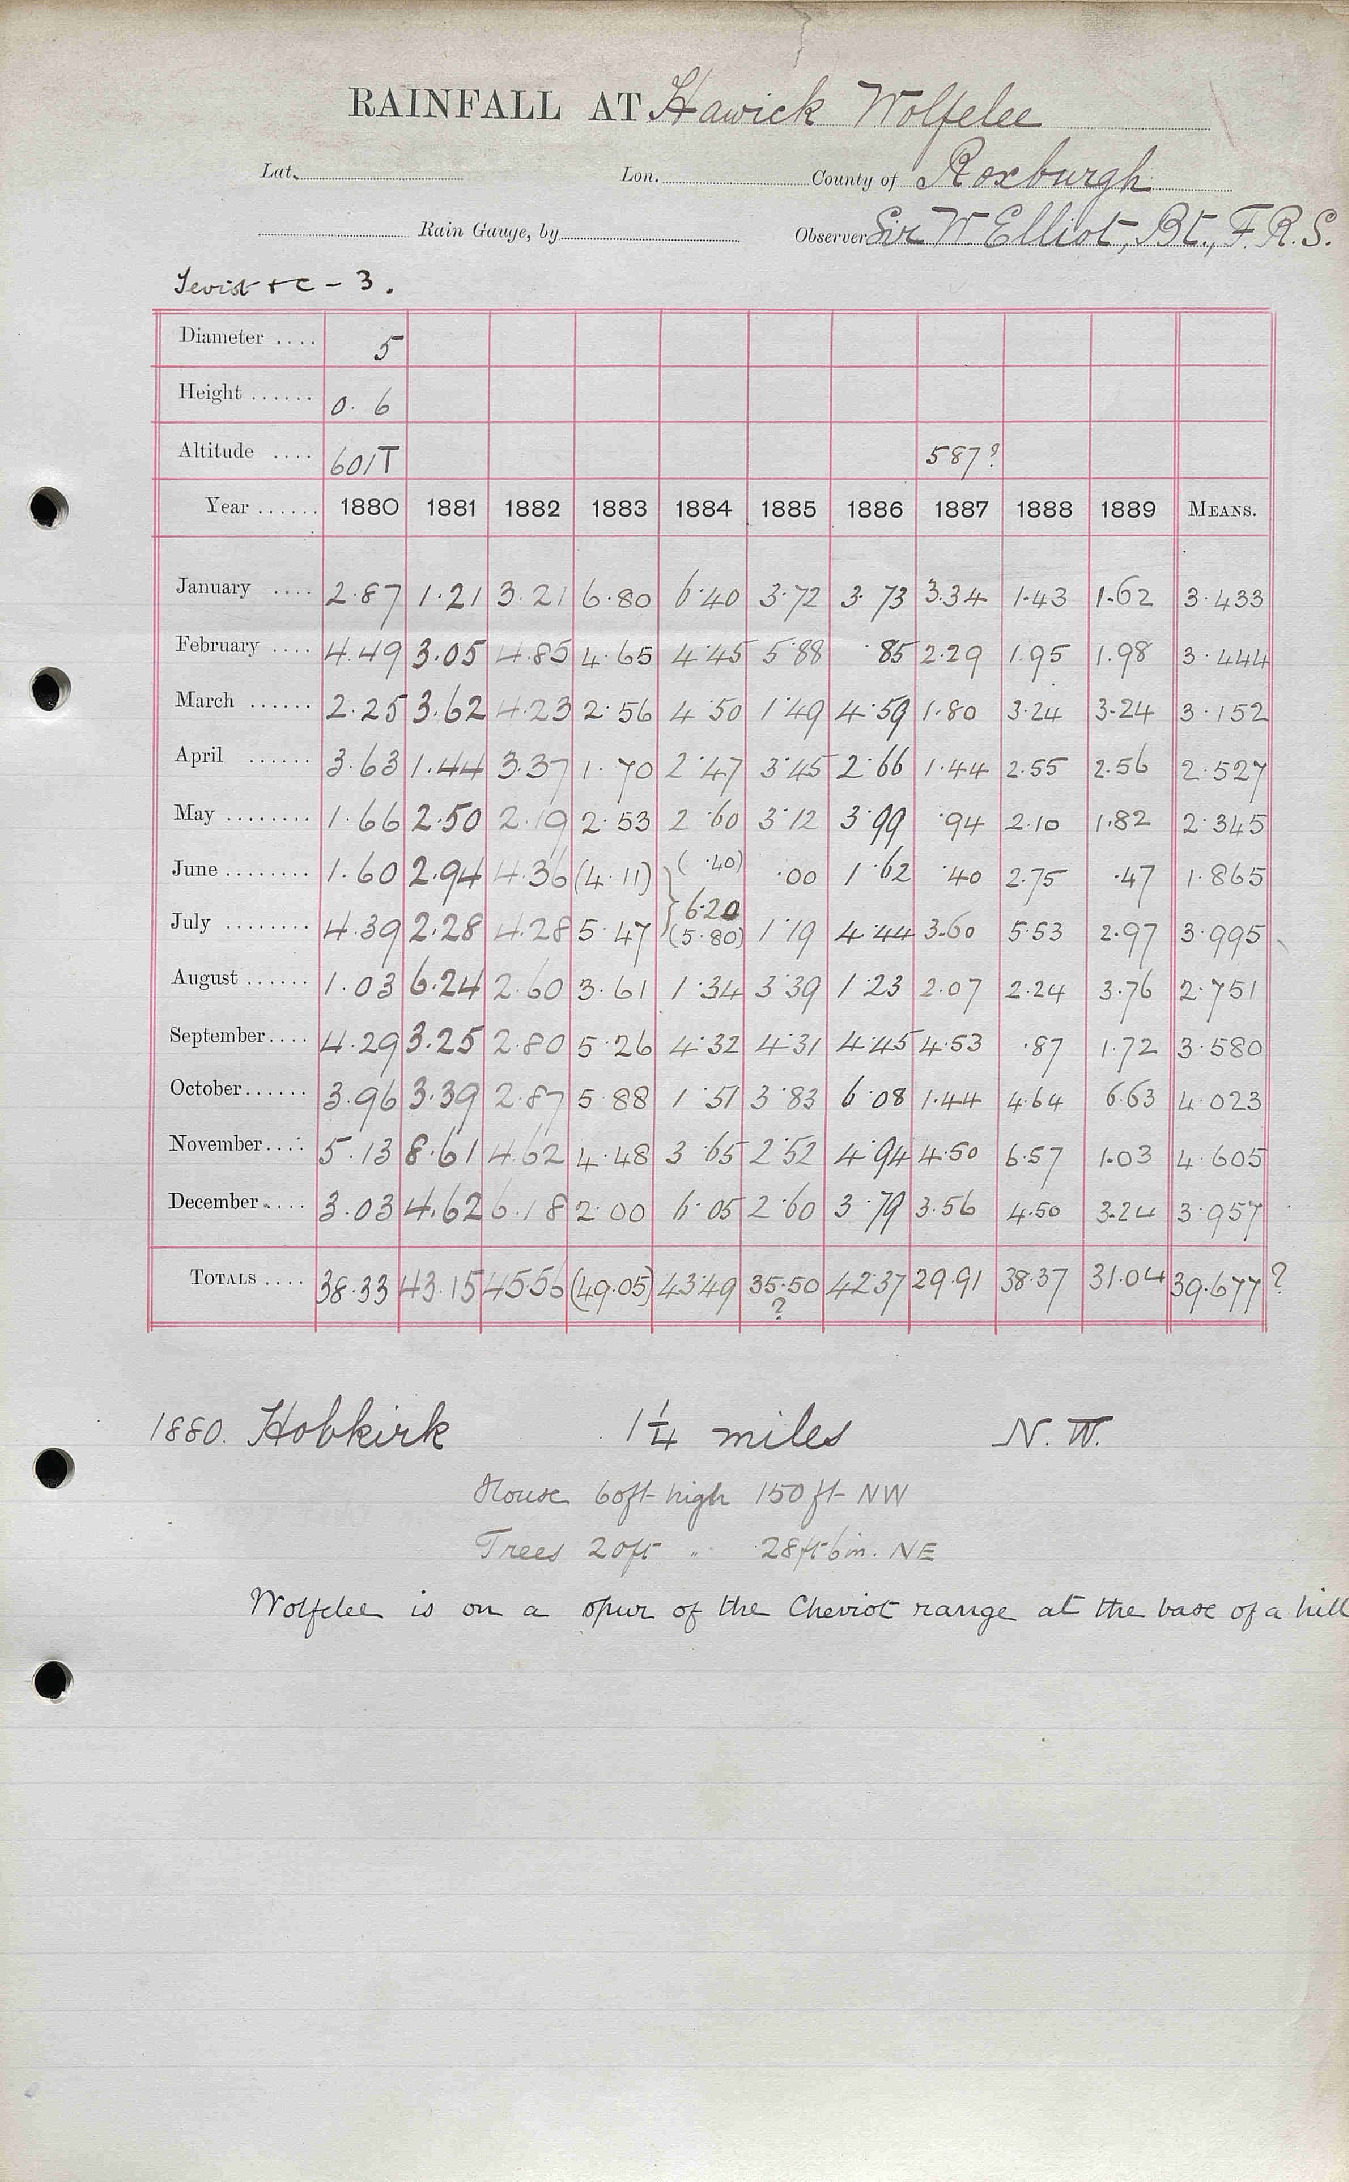 RAINFALL AT Hawick Wolfelee
Lat. Lon. County of Roxburgh
Rain Gauge, by Observer Sir W Elliot, Bt., F.R.S.
Teviot & C - 3.
Diameter .... 5
Height ...... 0.6
Altitude .... 601T 587?
Year ...... 1880 1881 1882 1883 1884 1885 1886 1887 1888 1889 MEANS.
January .... 2.87 1.21 3.21 6.80 6.40 3.72 3.73 3.34 1.43 1.62 3.433
February .... 4.49 3.05 4.85 4.65 4.45 5.88 .85 2.29 1.95 1.98 3.444
March ...... 2.25 3.62 4.23 2.56 4.50 1.49 4.59 1.80 3.24 3.24 3.152
April ...... 3.63 1.44 3.37 1.70 2.47 3.45 2.66 1.44 2.55 2.56 2.527
May ........ 1.66 2.50 2.19 2.53 2.60 3.12 3.99 .94 2.10 1.82 2.345
June ........ 1.60 2.94 4.36 (4.11) (.40) .00 1.62 .40 2.75 .47 1.865
6.20
July ........ 4.39 2.28 4.28 5.47 (5.80) 1.19 4.44 3.60 5.53 2.97 3.995
August ...... 1.03 6.24 2.60 3.61 1.34 3.39 1.23 2.07 2.24 3.76 2.751
September.... 4.29 3.25 2.80 5.26 4.32 4.31 4.45 4.53 .87 1.72 3.580
October...... 3.96 3.39 2.87 5.88 1.51 3.83 6.08 1.44 4.64 6.63 4.023
November.... 5.13 8.61 4.62 4.48 3.65 2.52 4.94 4.50 6.57 1.03 4.605
December.... 3.03 4.62 6.18 2.00 6.05 2.60 3.79 3.56 4.50 3.24 3.957
TOTALS .... 38.33 43.15 45.56 (49.05) 43.49 35.50 42.37 29.91 38.37 31.04 39.677 ?
?
1880. Hobkirk 1¼ miles N.W.
House 60ft high 150ft NW
Trees 20ft " 28ft 6in. NE
Wolfelee is on a spur of the Cheviot range at the base of a hill